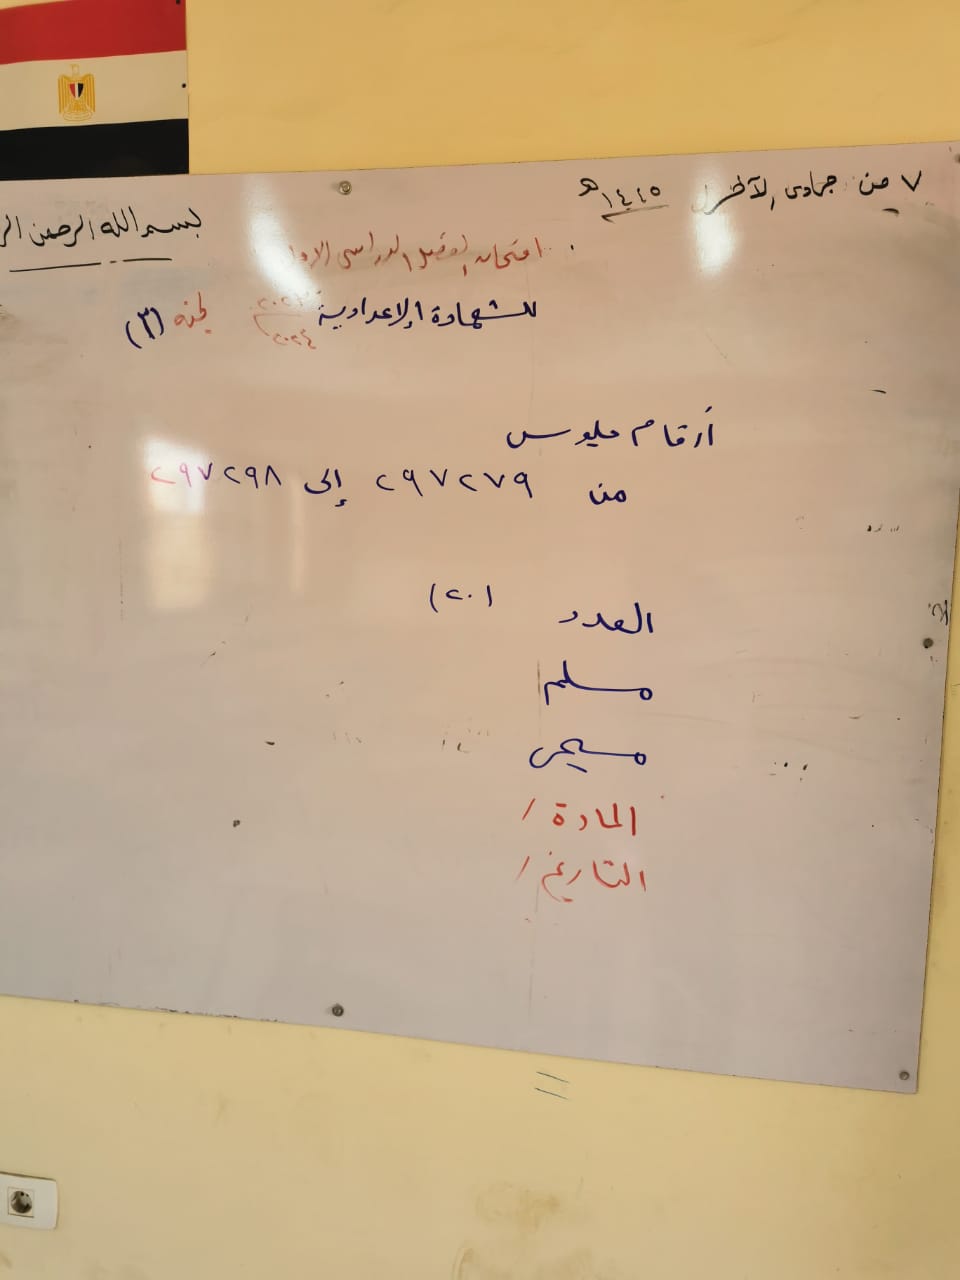 ٧ من جمادى الآخر ١٤٤٥هـ
بسم الله الرحمن
امتحان الفصل الدراسى الاول
للشهادة الإعدادية ٢٠٢٣ / ٢٠٢٤ لجنه (٣)
أرقام جلوس
من ٢٩٧٢٧٩ إلى ٢٩٧٢٩٨
العدد (٢٠)
مسلم
مسيحى
المادة /
التاريخ /